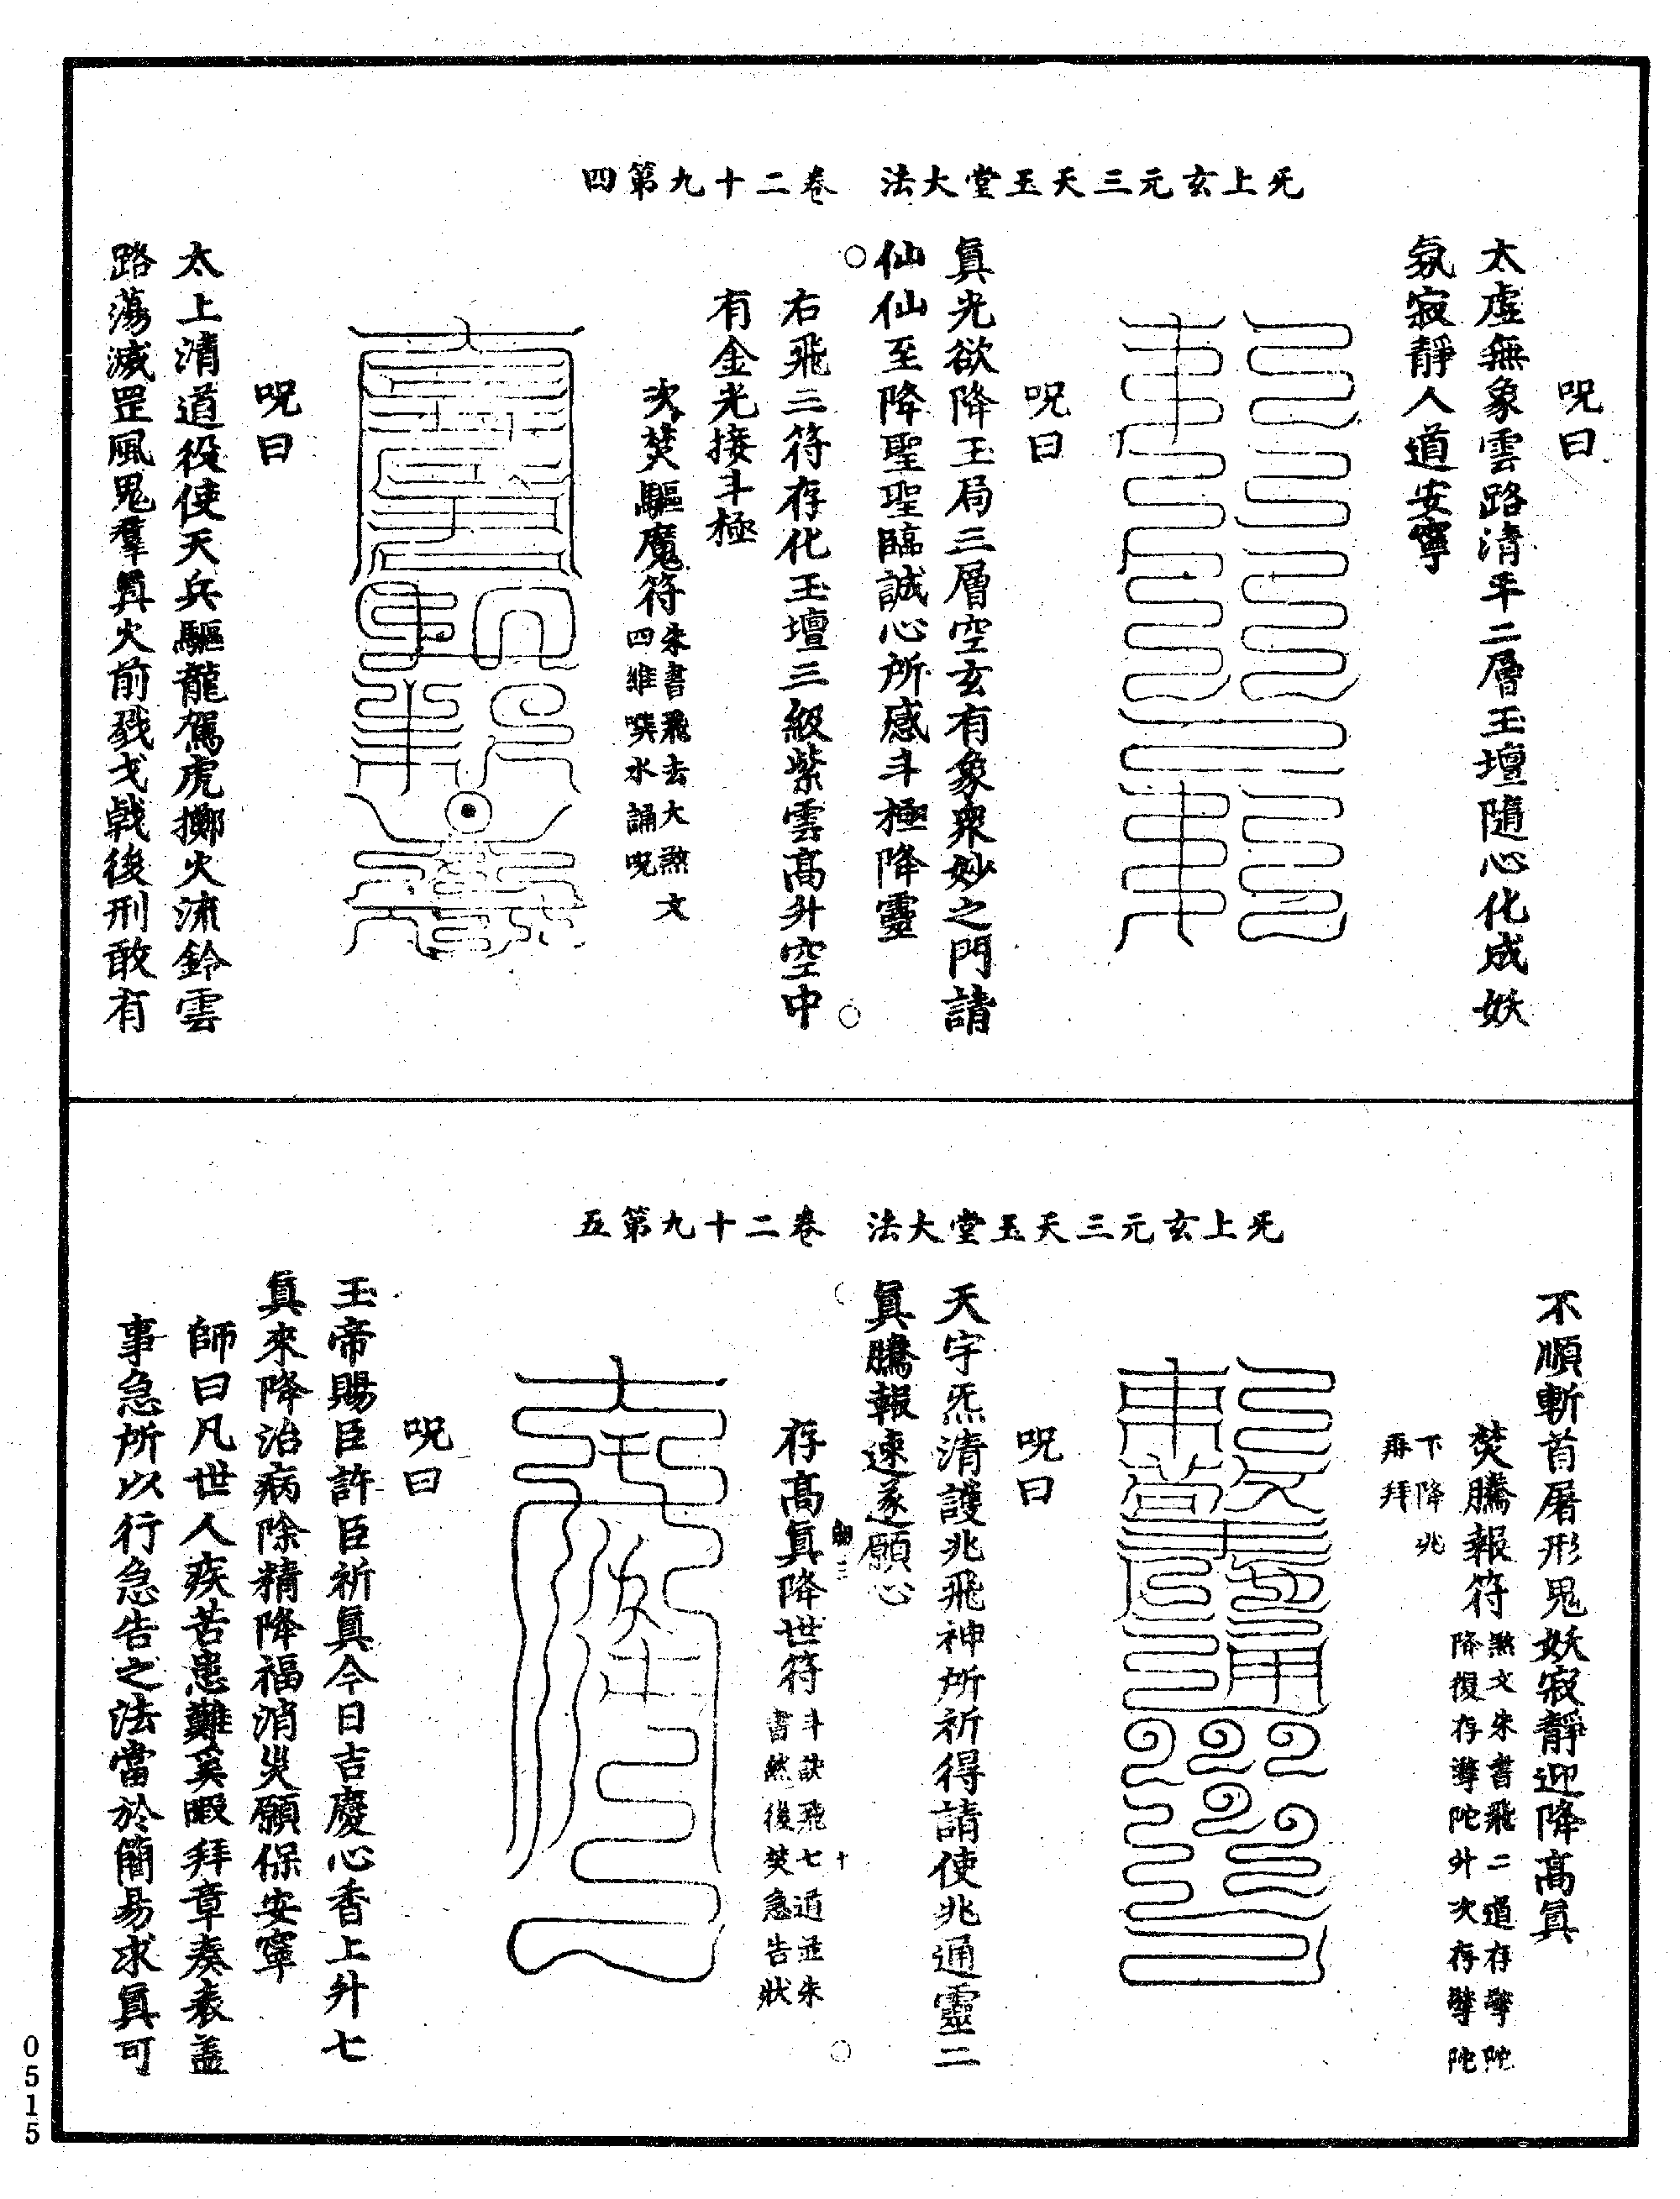 四第九十二卷　法大堂玉天三元玄上旡
呪曰
太虛無象雲路清平二層玉壇隨心化成妖
氛寂靜人道安寧
呪曰
眞光欲降玉局三層空玄有象衆妙之門請
仙仙至降聖聖臨誠心所感斗極降靈
右飛三符存化玉壇三級紫雲高升空中
有金光接斗極
次焚驅魔符朱書飛去大煞文
四維噀水誦呪
呪曰
太上清道役使天兵驅龍駕虎擲火流鈴雲
路蕩滅罡風鬼羣眞火前戮戈戟後刑敢有
五第九十二卷　法大堂玉天三元玄上旡
不順斬首屠形鬼妖寂靜迎降高眞
焚騰報符煞文朱書飛二道存擎陀
降復存擎陀升次存擎陀
下降兆
再拜
呪曰
天宇炁清護兆飛神所祈得請使兆通靈二
眞騰報速遂願心
存高眞降世符斗訣飛七道並朱
書然後焚急告狀
呪曰
玉帝賜臣許臣祈眞今日吉慶心香上升七
眞來降治病除精降福消災願保安寧
師曰凡世人疾苦患難奚暇拜章奏表蓋
事急所以行急告之法當於簡易求眞可
0515